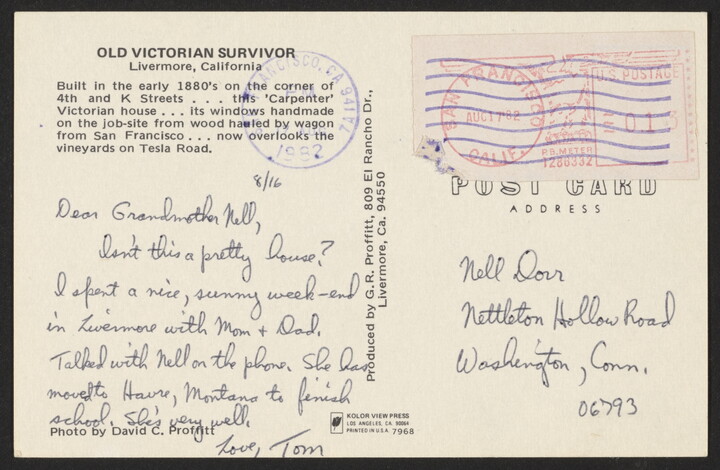 OLD VICTORIAN SURVIVOR
Livermore, California
Built in the early 1880's on the corner of
4th and K Streets . . . this 'Carpenter'
Victorian house . . . its windows handmade
on the job-site from wood hauled by wagon
from San Francisco . . . now overlooks the
vineyards on Tesla Road.
8/16
Dear Grandmother Nell,
Isn't this a pretty house?
I spent a nice, sunny week-end
in Livermore with Mom + Dad.
Talked with Nell on the phone. She has
moved to Havre, Montana to finish
school. She's very well.
Love, Tom
Photo by David C. Proffitt
Produced by G.R. Proffitt, 809 El Rancho Dr.,
Livermore, Ca. 94550
KOLOR VIEW PRESS
LOS ANGELES, CA. 90064
PRINTED IN U.S.A. 7968
FRANCISCO, CA 941
1982
SAN FRANCISCO
AUG 17 '82
CALIF.
U.S. POSTAGE
013
P.B. METER
1286332
POST CARD
ADDRESS
Nell Dorr
Nettleton Hollow Road
Washington, Conn.
06793